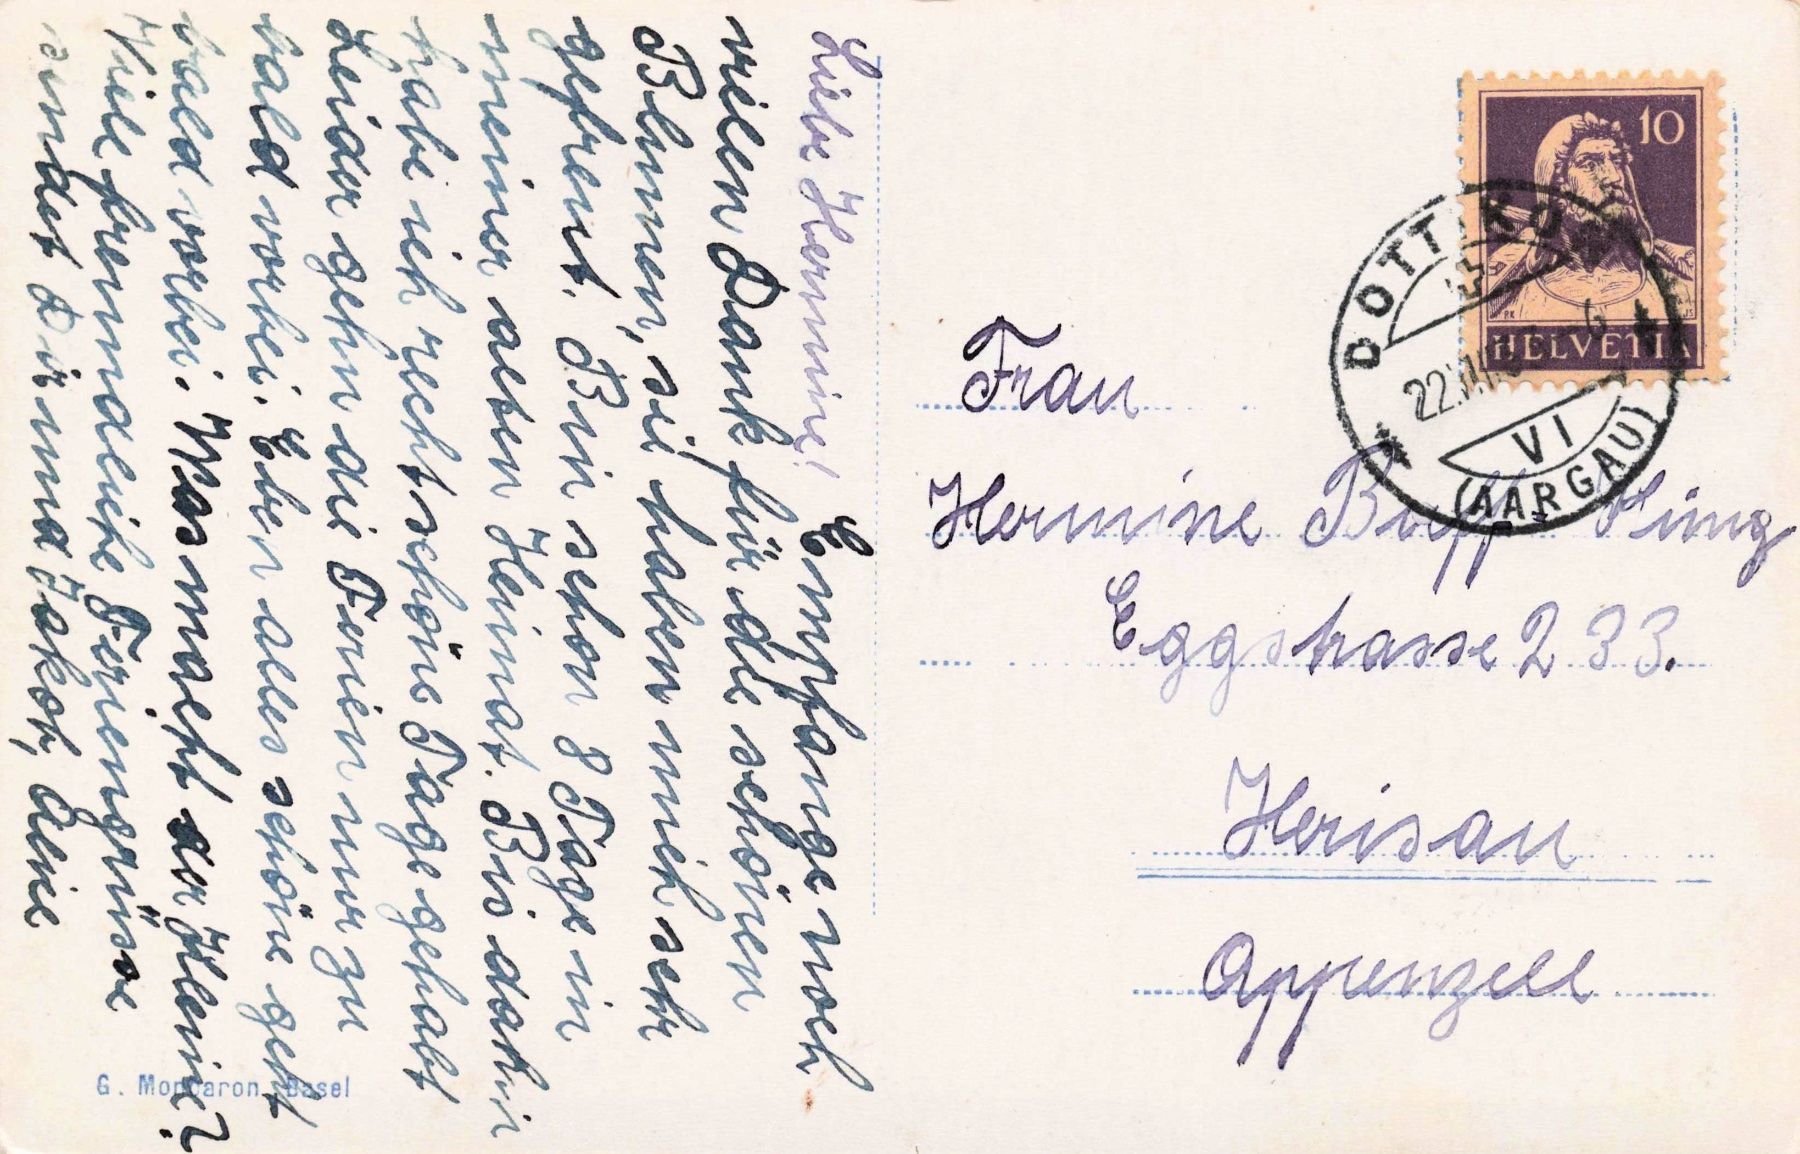 Liebe Hermine!
Empfange noch
vielen Dank für die schönen
Blumen, sie haben mich sehr
gefreut. Bin schon 8 Tage in
meiner alten Heimat. Bis dahin
habe ich recht schöne Tage gehabt
Leider gehn die Ferien nur zu
bald vorbei. Eben alles schöne geht
bald vorbei. Was macht der Kleine?
Viele freundliche Feriengrüsse
sendet Dir und Jakob, Aline
G. Moncaron, Basel
10
HELVETIA
DOTTIKON
22.VII
6
VI
(AARGAU)
Frau
Hermine Buff
Eggstrasse 233.
Herisau
Appenzell